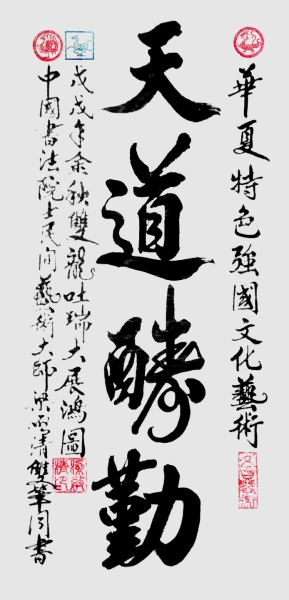 華夏特色強國文化藝術
天道醻勤
戊戌年金秋雙龍吐瑞大展鴻圖
中國書法院士民間藝術大師梁清雙筆同書